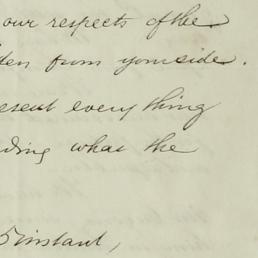 our respects of the
from your side.
everything
what the
instant,